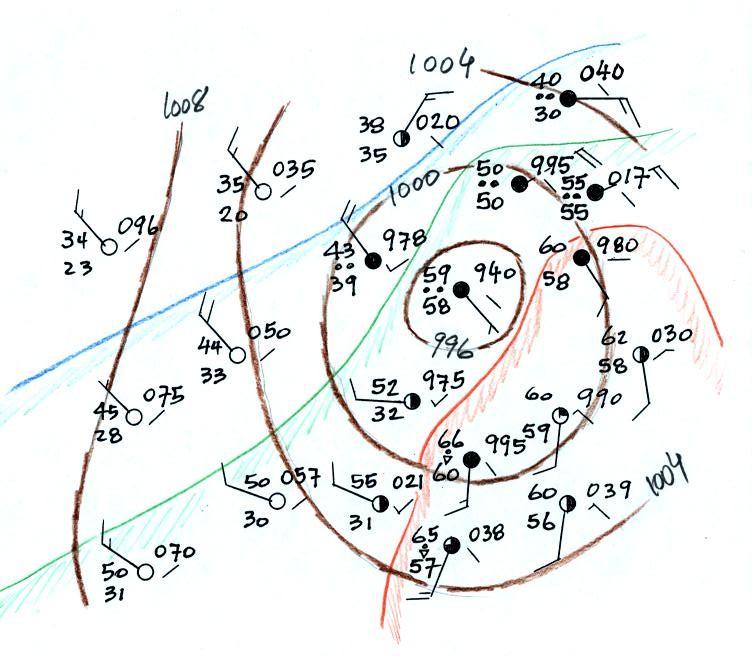 1004
40 040
30
1008
38 020
35
35 035
20
1000
50 995
50
55 017
55
34 096
23
43 978
39
60 980
58
59 940
58
996
44 050
33
62 030
58
52 975
32
45 075
28
60 990
59
66 995
60
50 057
30
55 021
31
60 039
56
1004
65 038
57
50 070
31